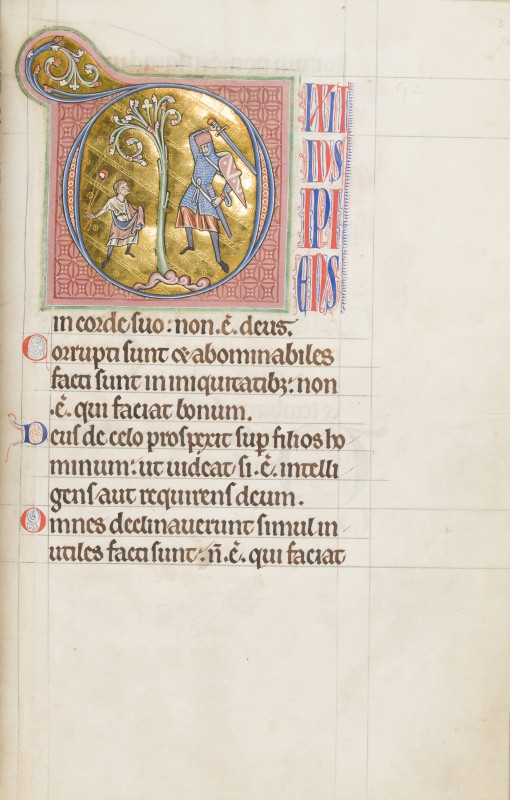 D IXIT
INS
IPI
ENS
in corde suo: non .ē. deus.
Corrupti sunt & abominabiles
facti sunt in iniquitatibꝫ: non
.ē. qui faciat bonum.
Deus de celo prospexit suꝑ filios ho
minum: ut uideat si .ē. intelli
gens aut requirens deum.
Omnes declinauerunt simul in
utiles facti sunt: n̄ .ē. qui faciat